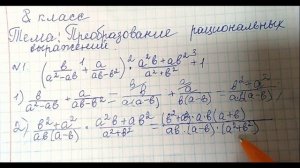 8 класс
Тема: Преобразование рациональных
выражений.
№1 (b/(a²-ab) + a/(ab-b²)) · (a²b+ab²)/(a²+b²) + 1
1) b/(a²-ab) + a/(ab-b²) = b/(a(a-b)) + a/(b(a-b)) = (b²+a²)/
2) (b²+a²)/(ab(a-b)) · (a²b+ab²)/(a²+b²) = ab(a+b)/(ab·(a-b)·(a²+b²))